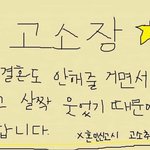 고소장
결혼도 안해줄 거면서
고 살짝 웃었기 때문에
합니다.
고소